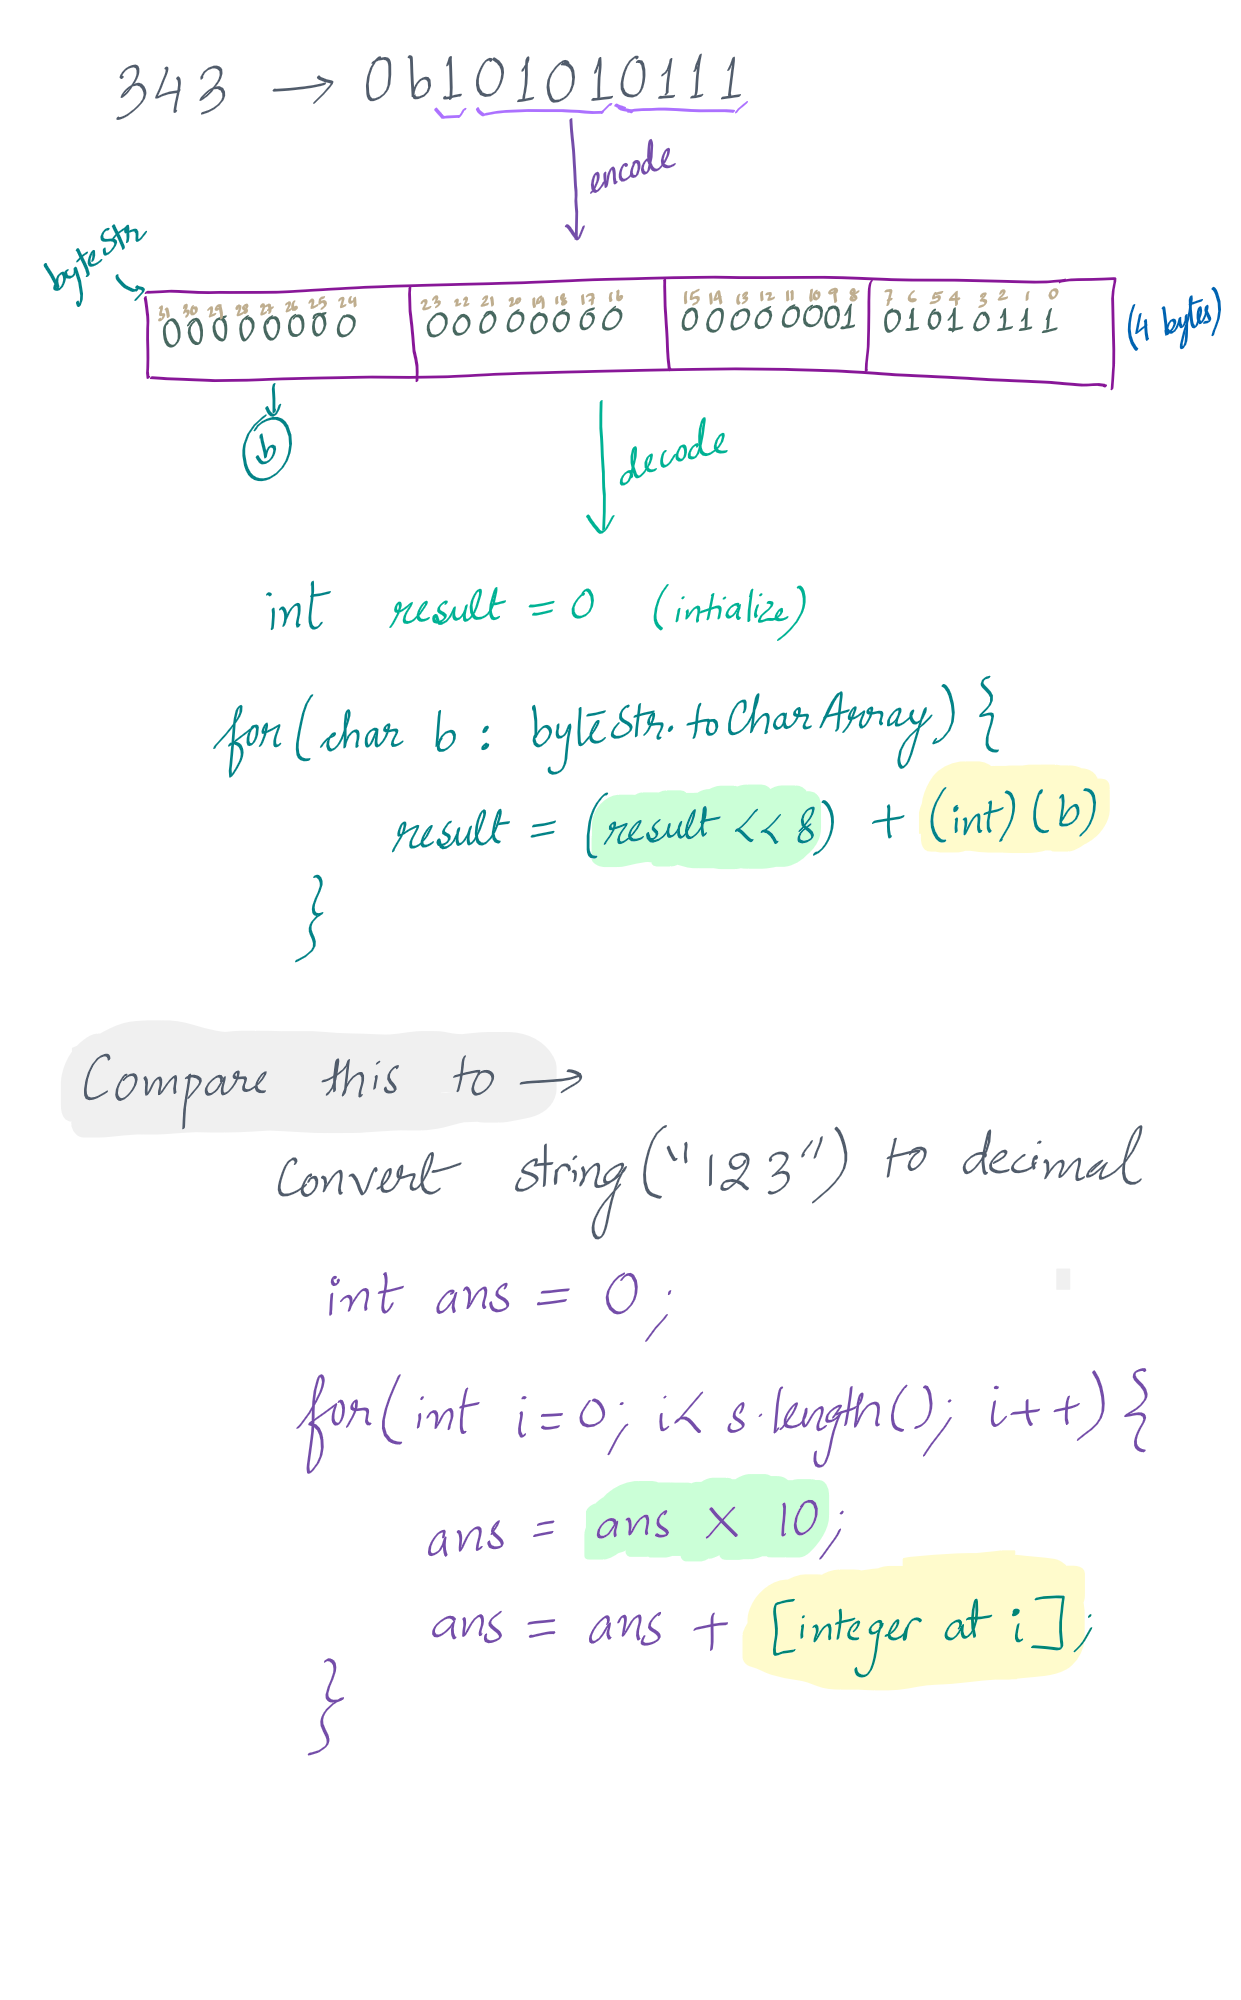 343 → 0b101010111
encode
byteStr
31 30 29 28 27 26 25 24 23 22 21 20 19 18 17 16 15 14 13 12 11 10 9 8 7 6 5 4 3 2 1 0
00000000 00000000 00000001 01010111
(4 bytes)
b
decode
int result = 0 (intialize)
for(char b : byteStr.toCharArray){
result = (result << 8) + (int)(b)
}
Compare this to →
Convert string("123") to decimal
int ans = 0;
for(int i=0; i< s.length(); i++){
ans = ans × 10;
ans = ans + [integer at i];
}